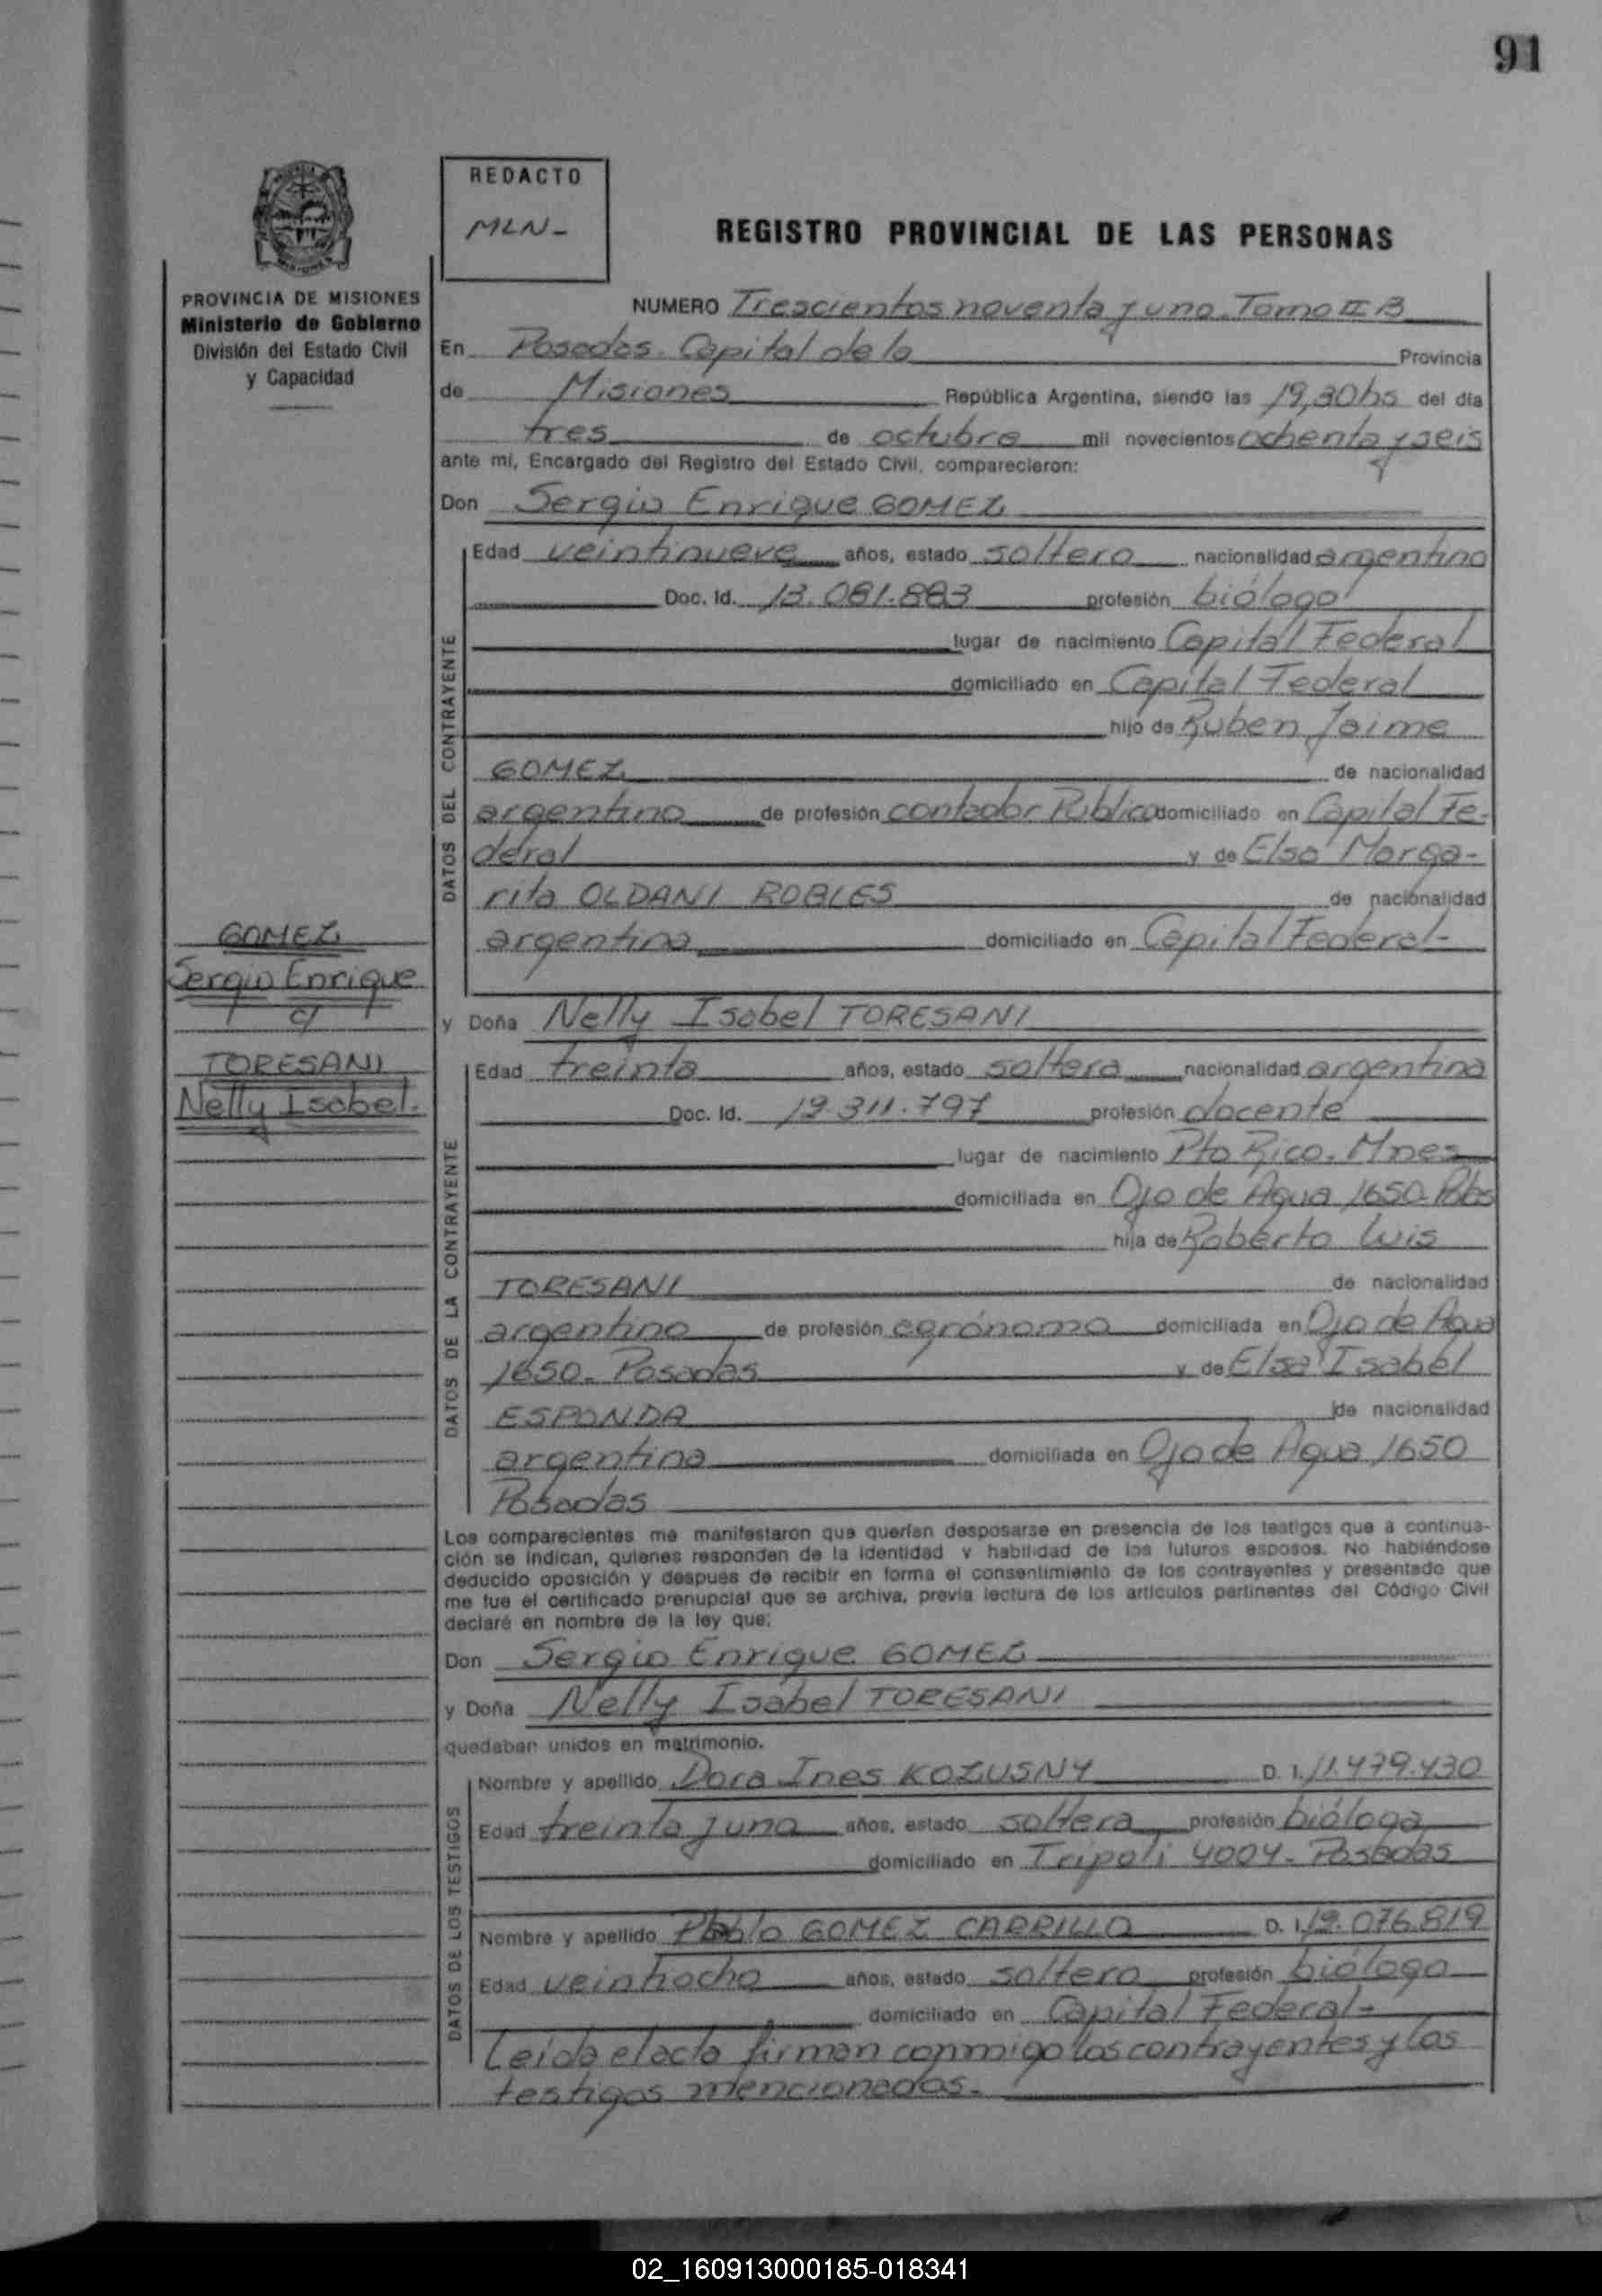 91
REDACTO
MLN-
REGISTRO PROVINCIAL DE LAS PERSONAS
PROVINCIA DE MISIONES
Ministerio de Gobierno
División del Estado Civil
y Capacidad
NUMERO Trescientos noventa y uno. Tomo II B
En Posadas. Capital de la Provincia
de Misiones República Argentina, siendo las 19,30 hs del día
tres de octubre mil novecientos ochenta y seis
ante mí, Encargado del Registro del Estado Civil, comparecieron:
Don Sergio Enrique GOMEZ
DATOS DEL CONTRAYENTE
Edad veintinueve años, estado soltero nacionalidad argentino
Doc. Id. 13.081.883 profesión biólogo
lugar de nacimiento Capital Federal
domiciliado en Capital Federal
hijo de Ruben Jaime
GOMEZ de nacionalidad
argentino de profesión contador Público domiciliado en Capital Fe-
deral y de Elsa Marga-
rita OLDANI ROBLES de nacionalidad
argentina domiciliado en Capital Federal-
GOMEZ
Sergio Enrique
c/
TORESANI
Nelly Isabel.
y Doña Nelly Isabel TORESANI
DATOS DE LA CONTRAYENTE
Edad treinta años, estado soltera nacionalidad argentina
Doc. Id. 12.311.797 profesión docente
lugar de nacimiento Pto Rico. Mnes
domiciliada en Ojo de Agua 1650. Pdas
hija de Roberto Luis
TORESANI de nacionalidad
argentino de profesión agrónomo domiciliada en Ojo de Agua
1650. Posadas y de Elsa Isabel
ESPONDA de nacionalidad
argentina domiciliada en Ojo de Agua 1650
Posadas
Los comparecientes me manifestaron que querían desposarse en presencia de los testigos que a continua-
ción se indican, quienes responden de la identidad y habilidad de los futuros esposos. No habiéndose
deducido oposición y después de recibir en forma el consentimiento de los contrayentes y presentado que
me fue el certificado prenupcial que se archiva, previa lectura de los artículos pertinentes del Código Civil
declaré en nombre de la ley que:
Don Sergio Enrique GOMEZ
y Doña Nelly Isabel TORESANI
quedaban unidos en matrimonio.
DATOS DE LOS TESTIGOS
Nombre y apellido Dora Ines KOZUSNY D. I. 11.479.430
Edad treinta y una años, estado soltera profesión bióloga
domiciliado en Tripoli 4004- Posadas
Nombre y apellido Pablo GOMEZ CARRILLO D. I. 12.076.819
Edad veintiocho años, estado soltero profesión biólogo
domiciliado en Capital Federal-
Leída el acta firman conmigo los contrayentes y los
testigos mencionados.
02_160913000185-018341